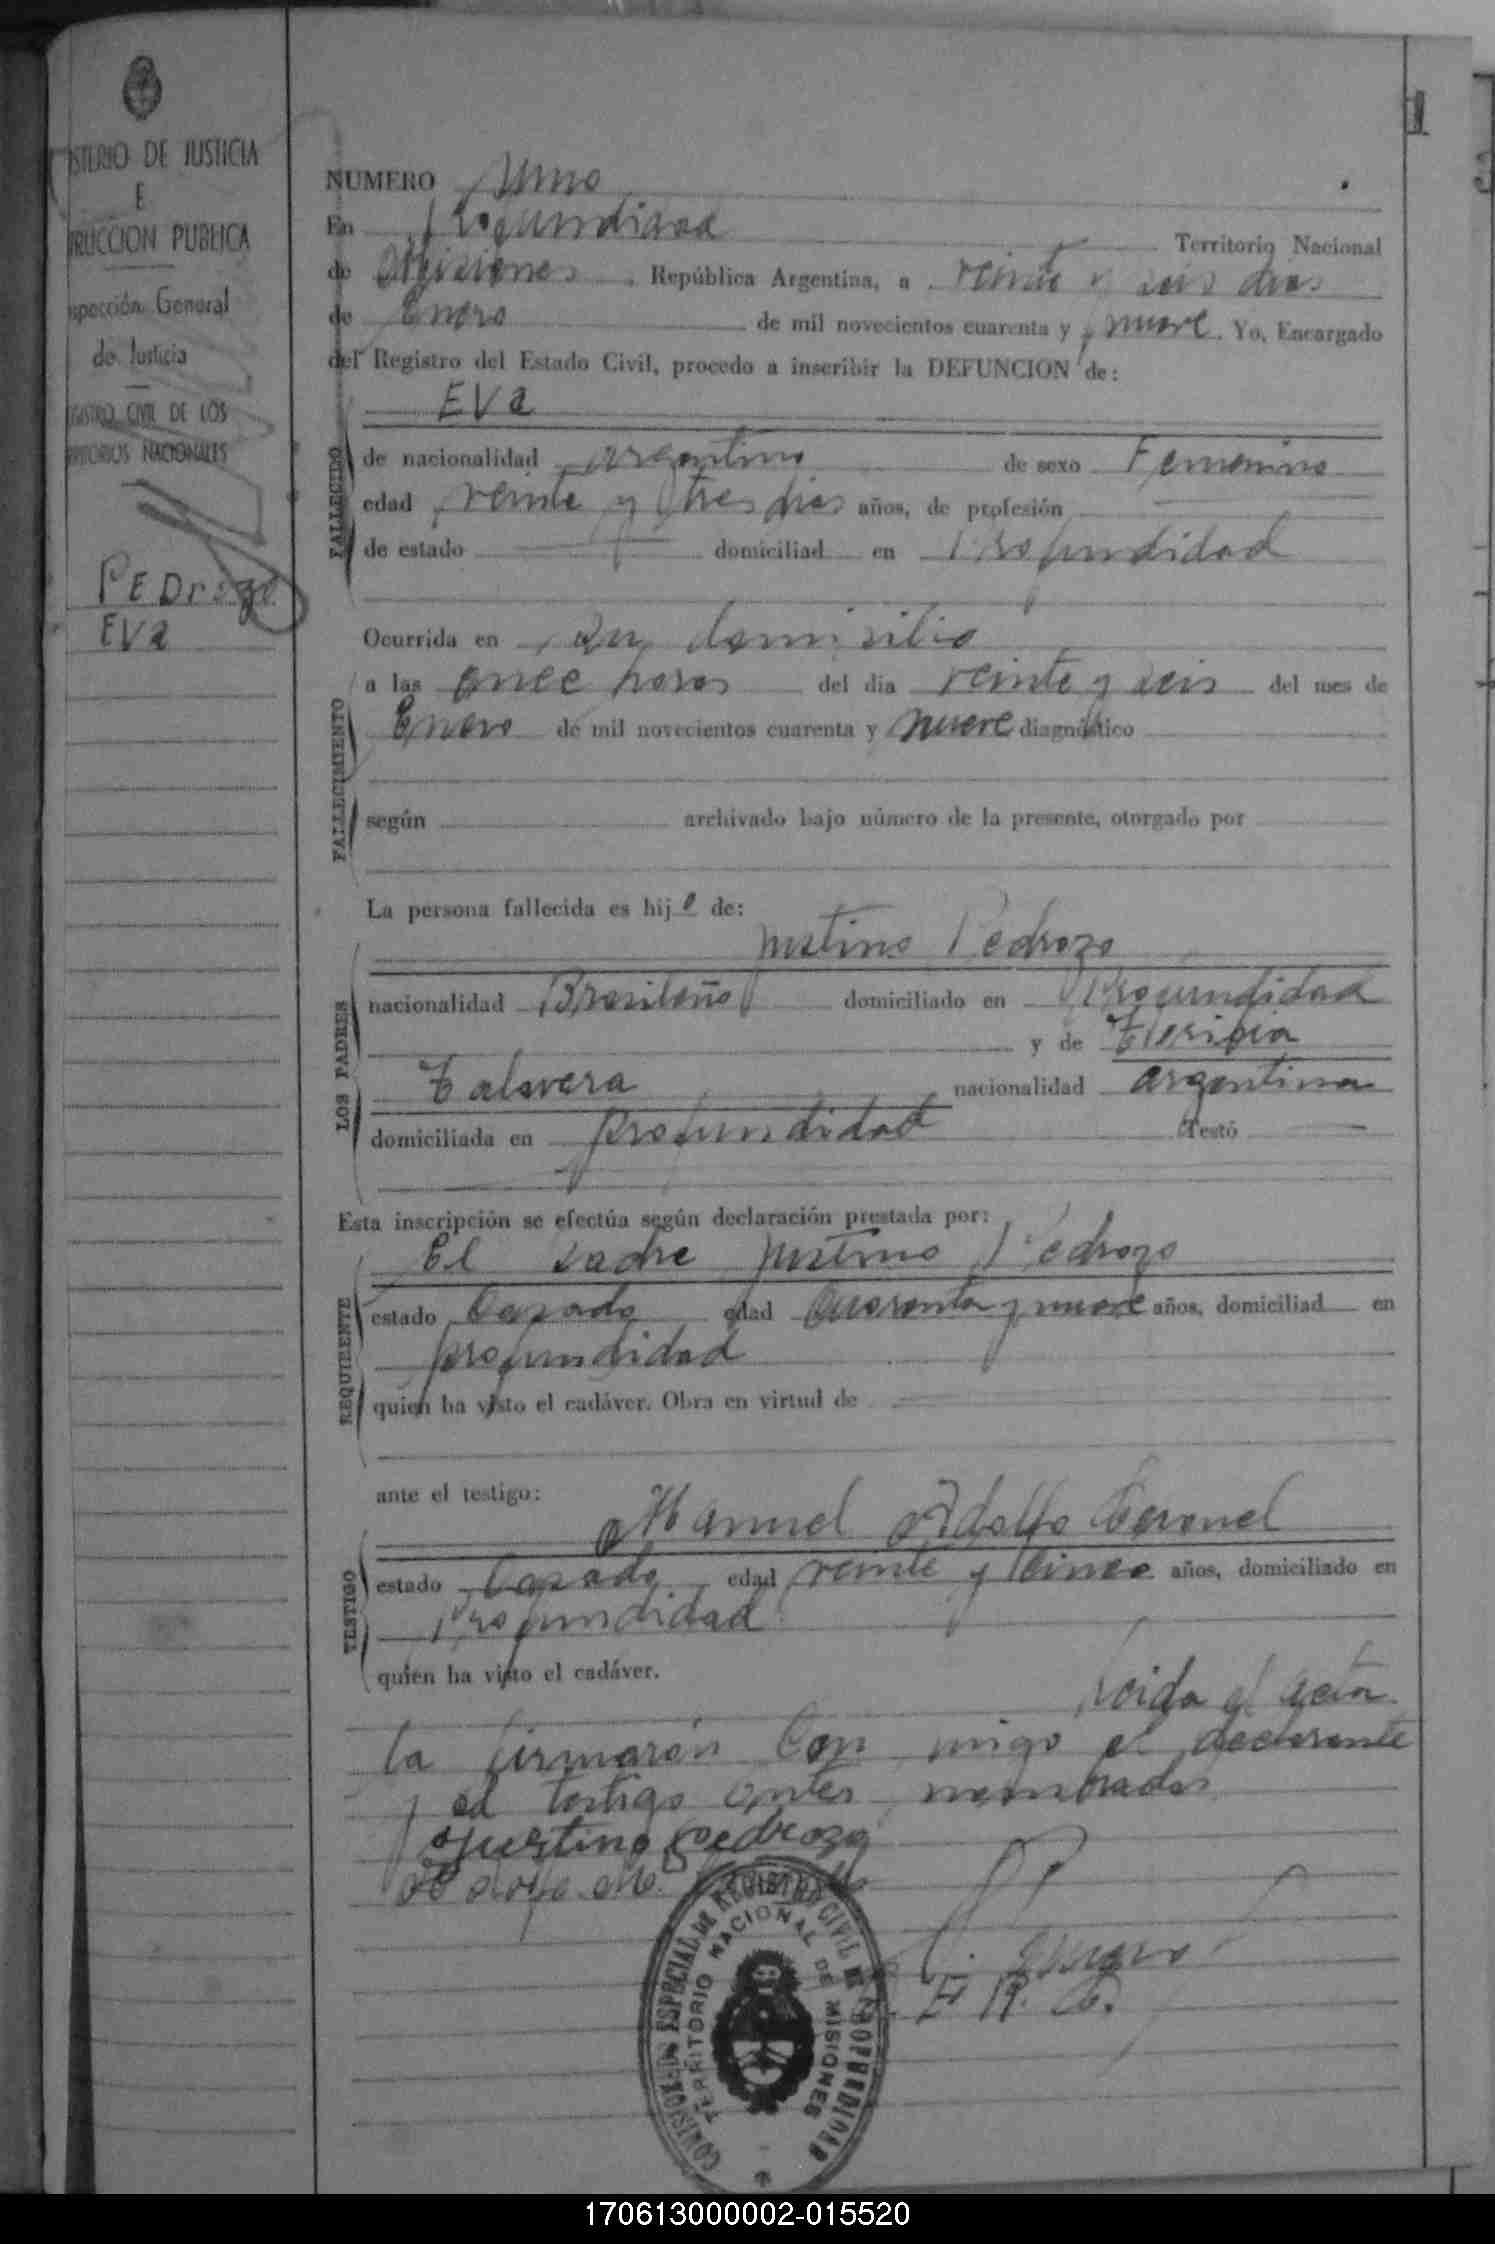 STERIO DE JUSTICIA
E
RUCCION PUBLICA
spección General
de Justicia
GISTRO CIVIL DE LOS
RITORIOS NACIONALES
PEDrozo
EVa
1
NUMERO uno
En Profundidad Territorio Nacional
de Misiones, República Argentina, a veinte y seis dias
de Enero de mil novecientos cuarenta y nueve. Yo, Encargado
del Registro del Estado Civil, procedo a inscribir la DEFUNCION de:
EVa
FALLECIDO
de nacionalidad argentino de sexo Femenino
edad veinte y tres dias años, de profesión
de estado domiciliad en Profundidad
FALLECIMIENTO
Ocurrida en su domisilio
a las once horas del día veinte y seis del mes de
Enero de mil novecientos cuarenta y nueve diagnóstico
según archivado bajo número de la presente, otorgado por
LOS PADRES
La persona fallecida es hij de:
Justino Pedrozo
nacionalidad Brasileño domiciliado en Profundidad
y de
Talavera nacionalidad argentina
domiciliada en profundidad Testó
Esta inscripción se efectúa según declaración prestada por:
REQUIRENTE
El padre Justino Pedrozo
estado Casado edad Cuarenta y nueve años, domiciliad en
profundidad
quien ha visto el cadáver. Obra en virtud de
TESTIGO
ante el testigo:
Manuel Adolfo Coronel
estado Casado edad veinte y Cinco años, domiciliado en
Profundidad
quien ha visto el cadáver.
Leida el acta
la firmarón Con migo el declarante
y el testigo antes nombrados
Justino Pedrozo
E. R. C.
COMISION DE ESPECIAL DE REGISTRO CIVIL DE PROFUNDIDAD
TERRITORIO NACIONAL DE MISIONES
170613000002-015520